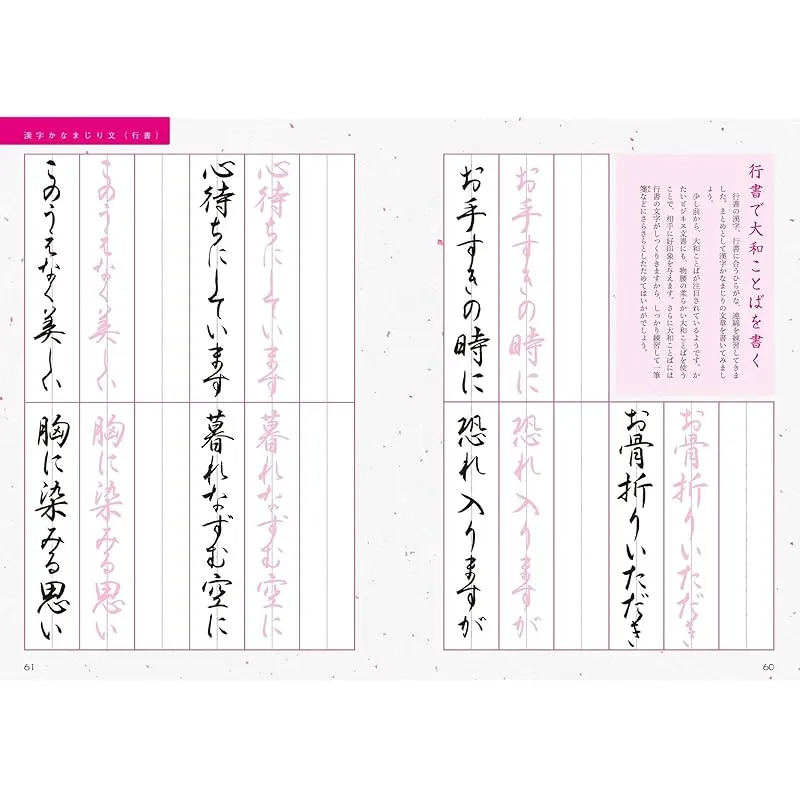 行書で大和ことばを書く
行書の漢字、行書に合うひらがな、連綿を練習してきま
した。まとめとして漢字かなまじりの文章を書いてみまし
ょう。
少し前から、大和ことばが注目されているようです。か
たいビジネス文書にも、物腰の柔らかい大和ことばを使う
ことで、相手に好印象を与えます。さらに大和ことばには
行書の文字がしっくりきますから、しっかり練習して一筆
箋などにさらさらとしたためてはいかがでしょう。
お骨折りいただき
お骨折りいただき
お手すきの時に
お手すきの時に
恐れ入りますが
恐れ入りますが
60
漢字かなまじり文（行書）
心待ちにしています
心待ちにしています
暮れなずむ空に
暮れなずむ空に
このうえなく美しい
このうえなく美しい
胸に染みる思い
胸に染みる思い
61